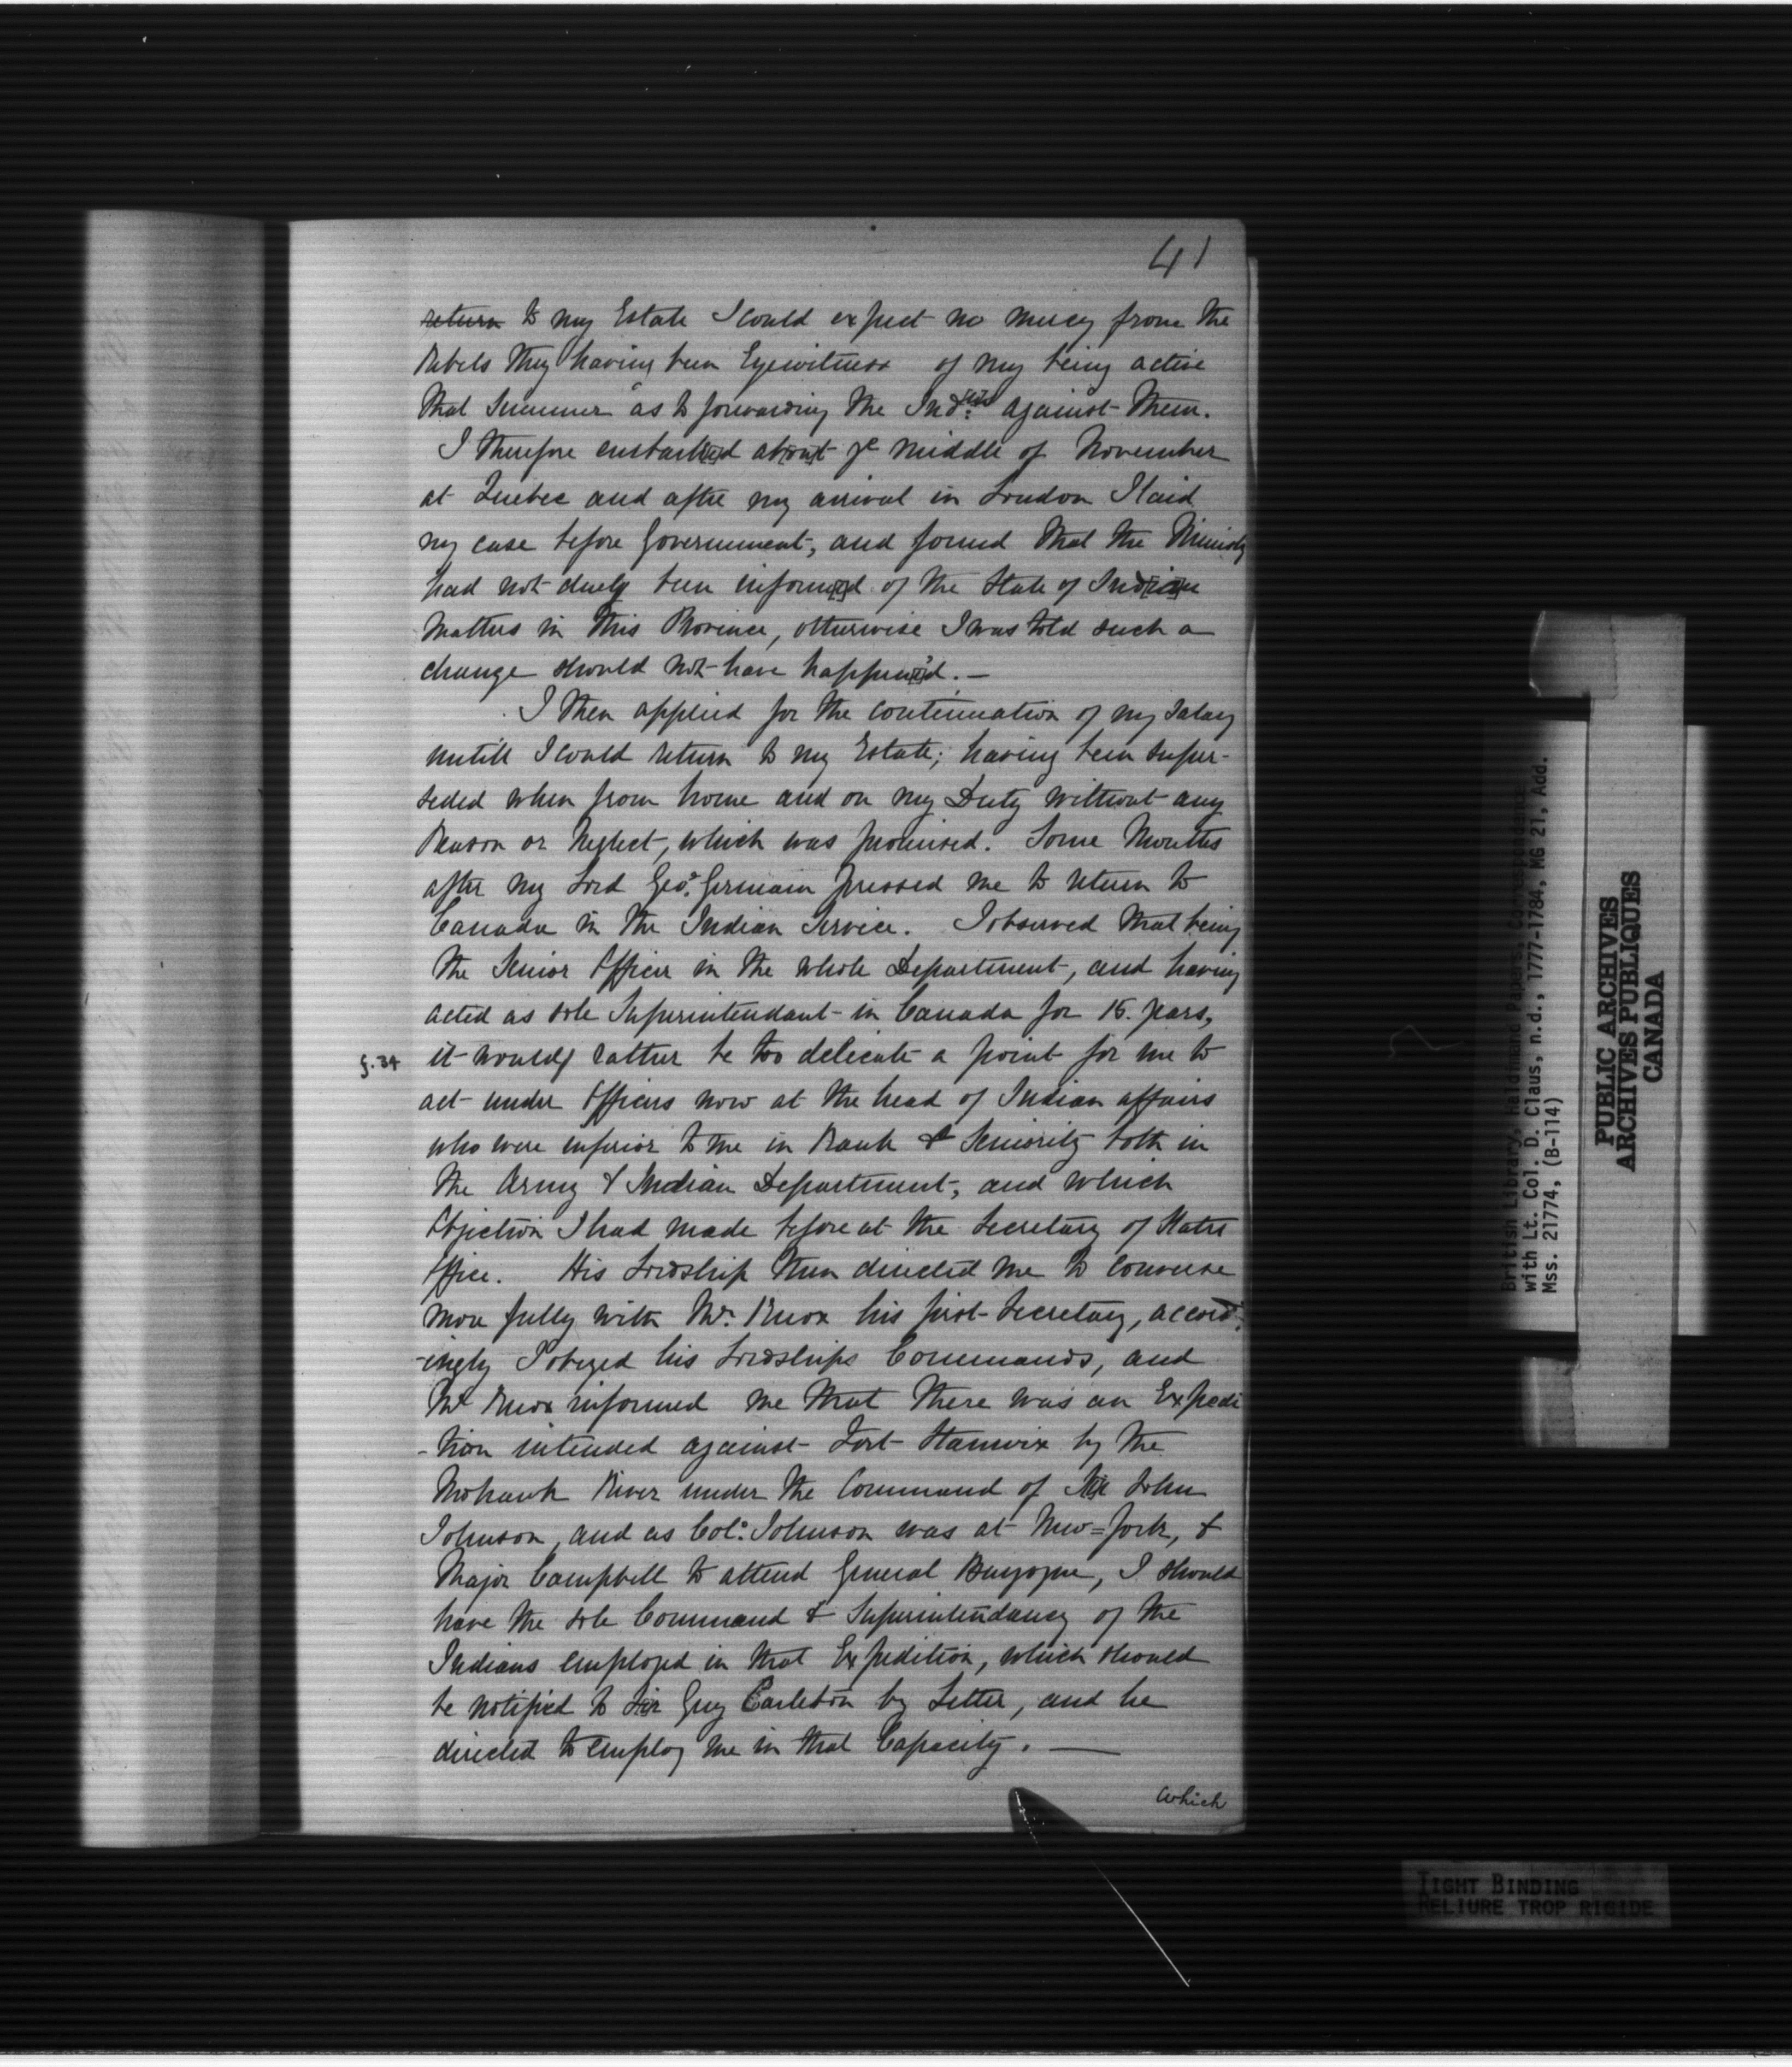 41
return to my Estate I could expect no mercy from the
Rebels they having been Eyewitness of my being active
that Summer as to forwarding the Ind:ns against them.
I therefore embarked about ye middle of November
at Quebec and after my arrival in London I laid
my case before Government, and found that the Ministry
had not duely been informed of the State of Indian
Matters in this Province, otherwise I was told such a
change should not have happen'd. —
I then applied for the continuation of my Salary
untill I could return to my Estate; having been super-
seded when from home and on my Duty without any
Reason or Neglect, which was promised. Some Months
after my Lord Geo: Germain pressed me to return to
Canada in the Indian Service. I observed that being
the Senior Officer in the whole Department, and having
acted as sole Superintendant in Canada for 15. years,
f. 34
it would rather be too delicate a point for me to
act under Officers now at the head of Indian affairs
who were inferior to me in Rank & Seniority both in
the Army & Indian Department, and which
Objection I had made before at the Secretary of States
Office. His Lordship then directed me to converse
more fully with Mr. Knox his first Secretary, accord-
-ingly I obeyed his Lordships Commands, and
Mr Knox informed me that there was an Expedi
-tion intended against Fort Stanwix by the
Mohawk River under the Command of Sir John
Johnson, and as Col: Johnson was at New=York, &
Major Campbell to attend General Burgoyne, I should
have the sole Command & Superintendancy of the
Indians employed in that Expedition, which should
be notified to Sir Guy Carleton by Letter, and he
directed to employ me in that Capacity. —
Which
British Library, Haldimand Papers, Correspondence
with Lt. Col. D. Claus, n.d., 1777-1784, MG 21, Add.
Mss. 21774, (B-114)
PUBLIC ARCHIVES
ARCHIVES PUBLIQUES
CANADA
TIGHT BINDING
RELIURE TROP RIGIDE